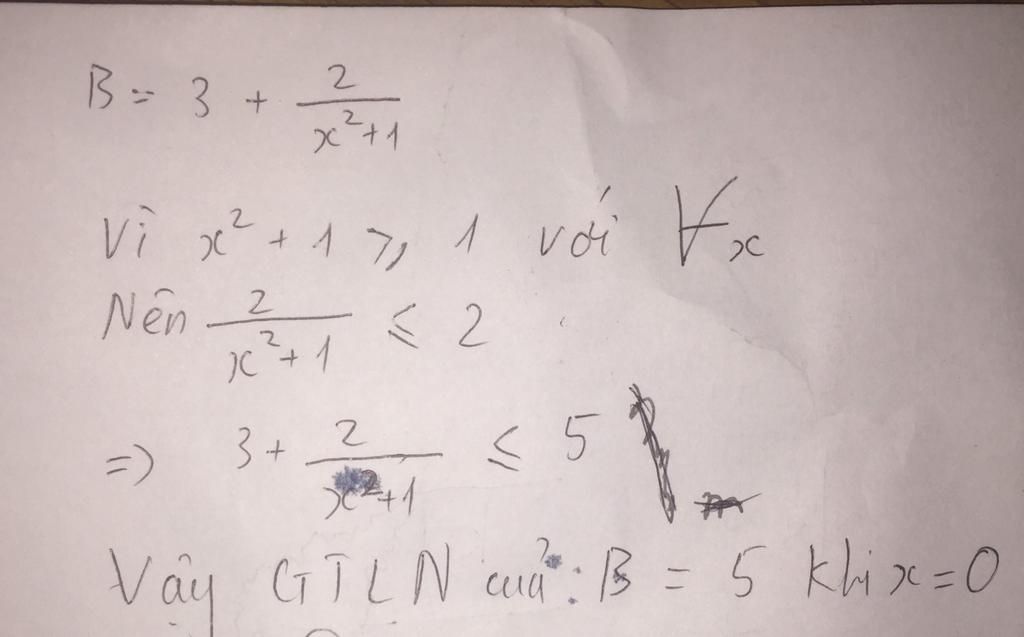 B = 3 + 2/(x²+1)
Vì x² + 1 ⩾ 1 với ∀x
Nên 2/(x²+1) ⩽ 2
=> 3 + 2/(x²+1) ⩽ 5
Vậy GTLN của : B = 5 khi x = 0